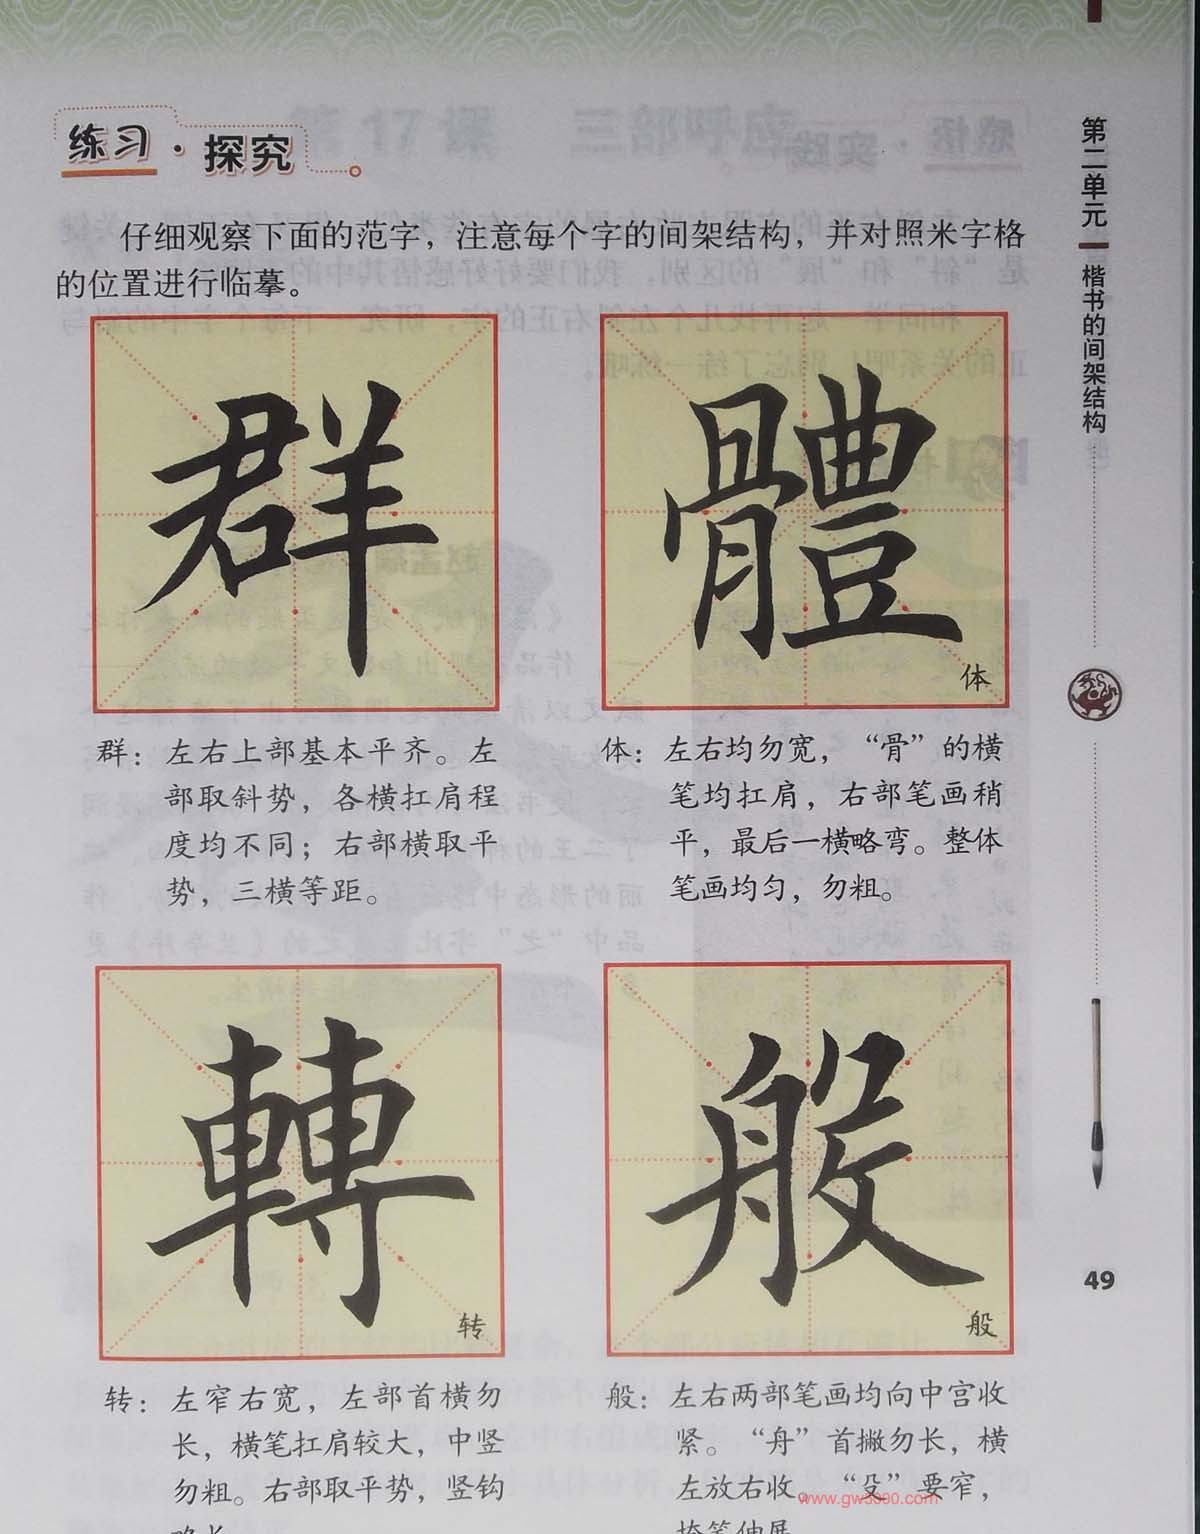 练习·探究
仔细观察下面的范字，注意每个字的间架结构，并对照米字格
的位置进行临摹。
群
體
体
群：左右上部基本平齐。左
部取斜势，各横扛肩程
度均不同；右部横取平
势，三横等距。
体：左右均勿宽，“骨”的横
笔均扛肩，右部笔画稍
平，最后一横略弯。整体
笔画均匀，勿粗。
轉
转
般
般
转：左窄右宽，左部首横勿
长，横笔扛肩较大，中竖
勿粗。右部取平势，竖钩
略长。
般：左右两部笔画均向中宫收
紧。“舟”首撇勿长，横
左放右收。“殳”要窄，
捺笔伸展。
第二单元
楷书的间架结构
49
www.gw3000.com